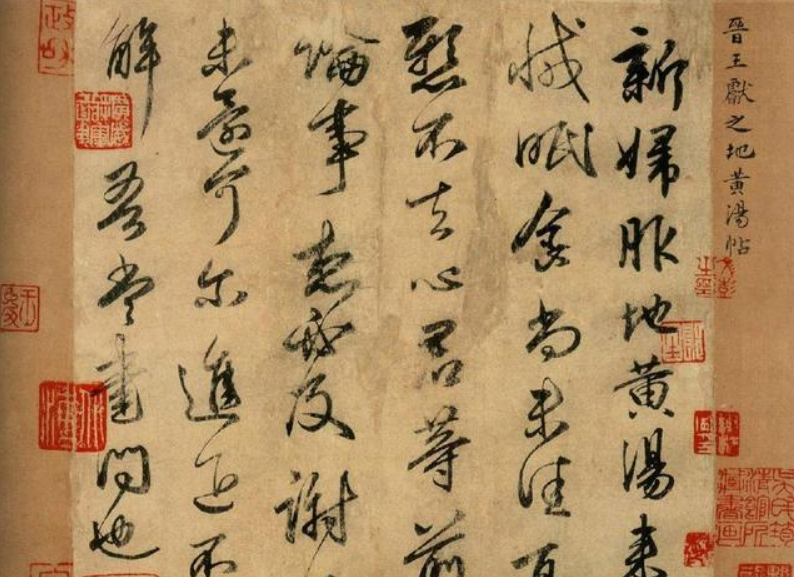 晉王獻之地黄湯帖
新婦服地黄湯来
減眠食尚未佳
懸不去心君等前
論事想必及謝
未還可尔進退不
解吾當書問也